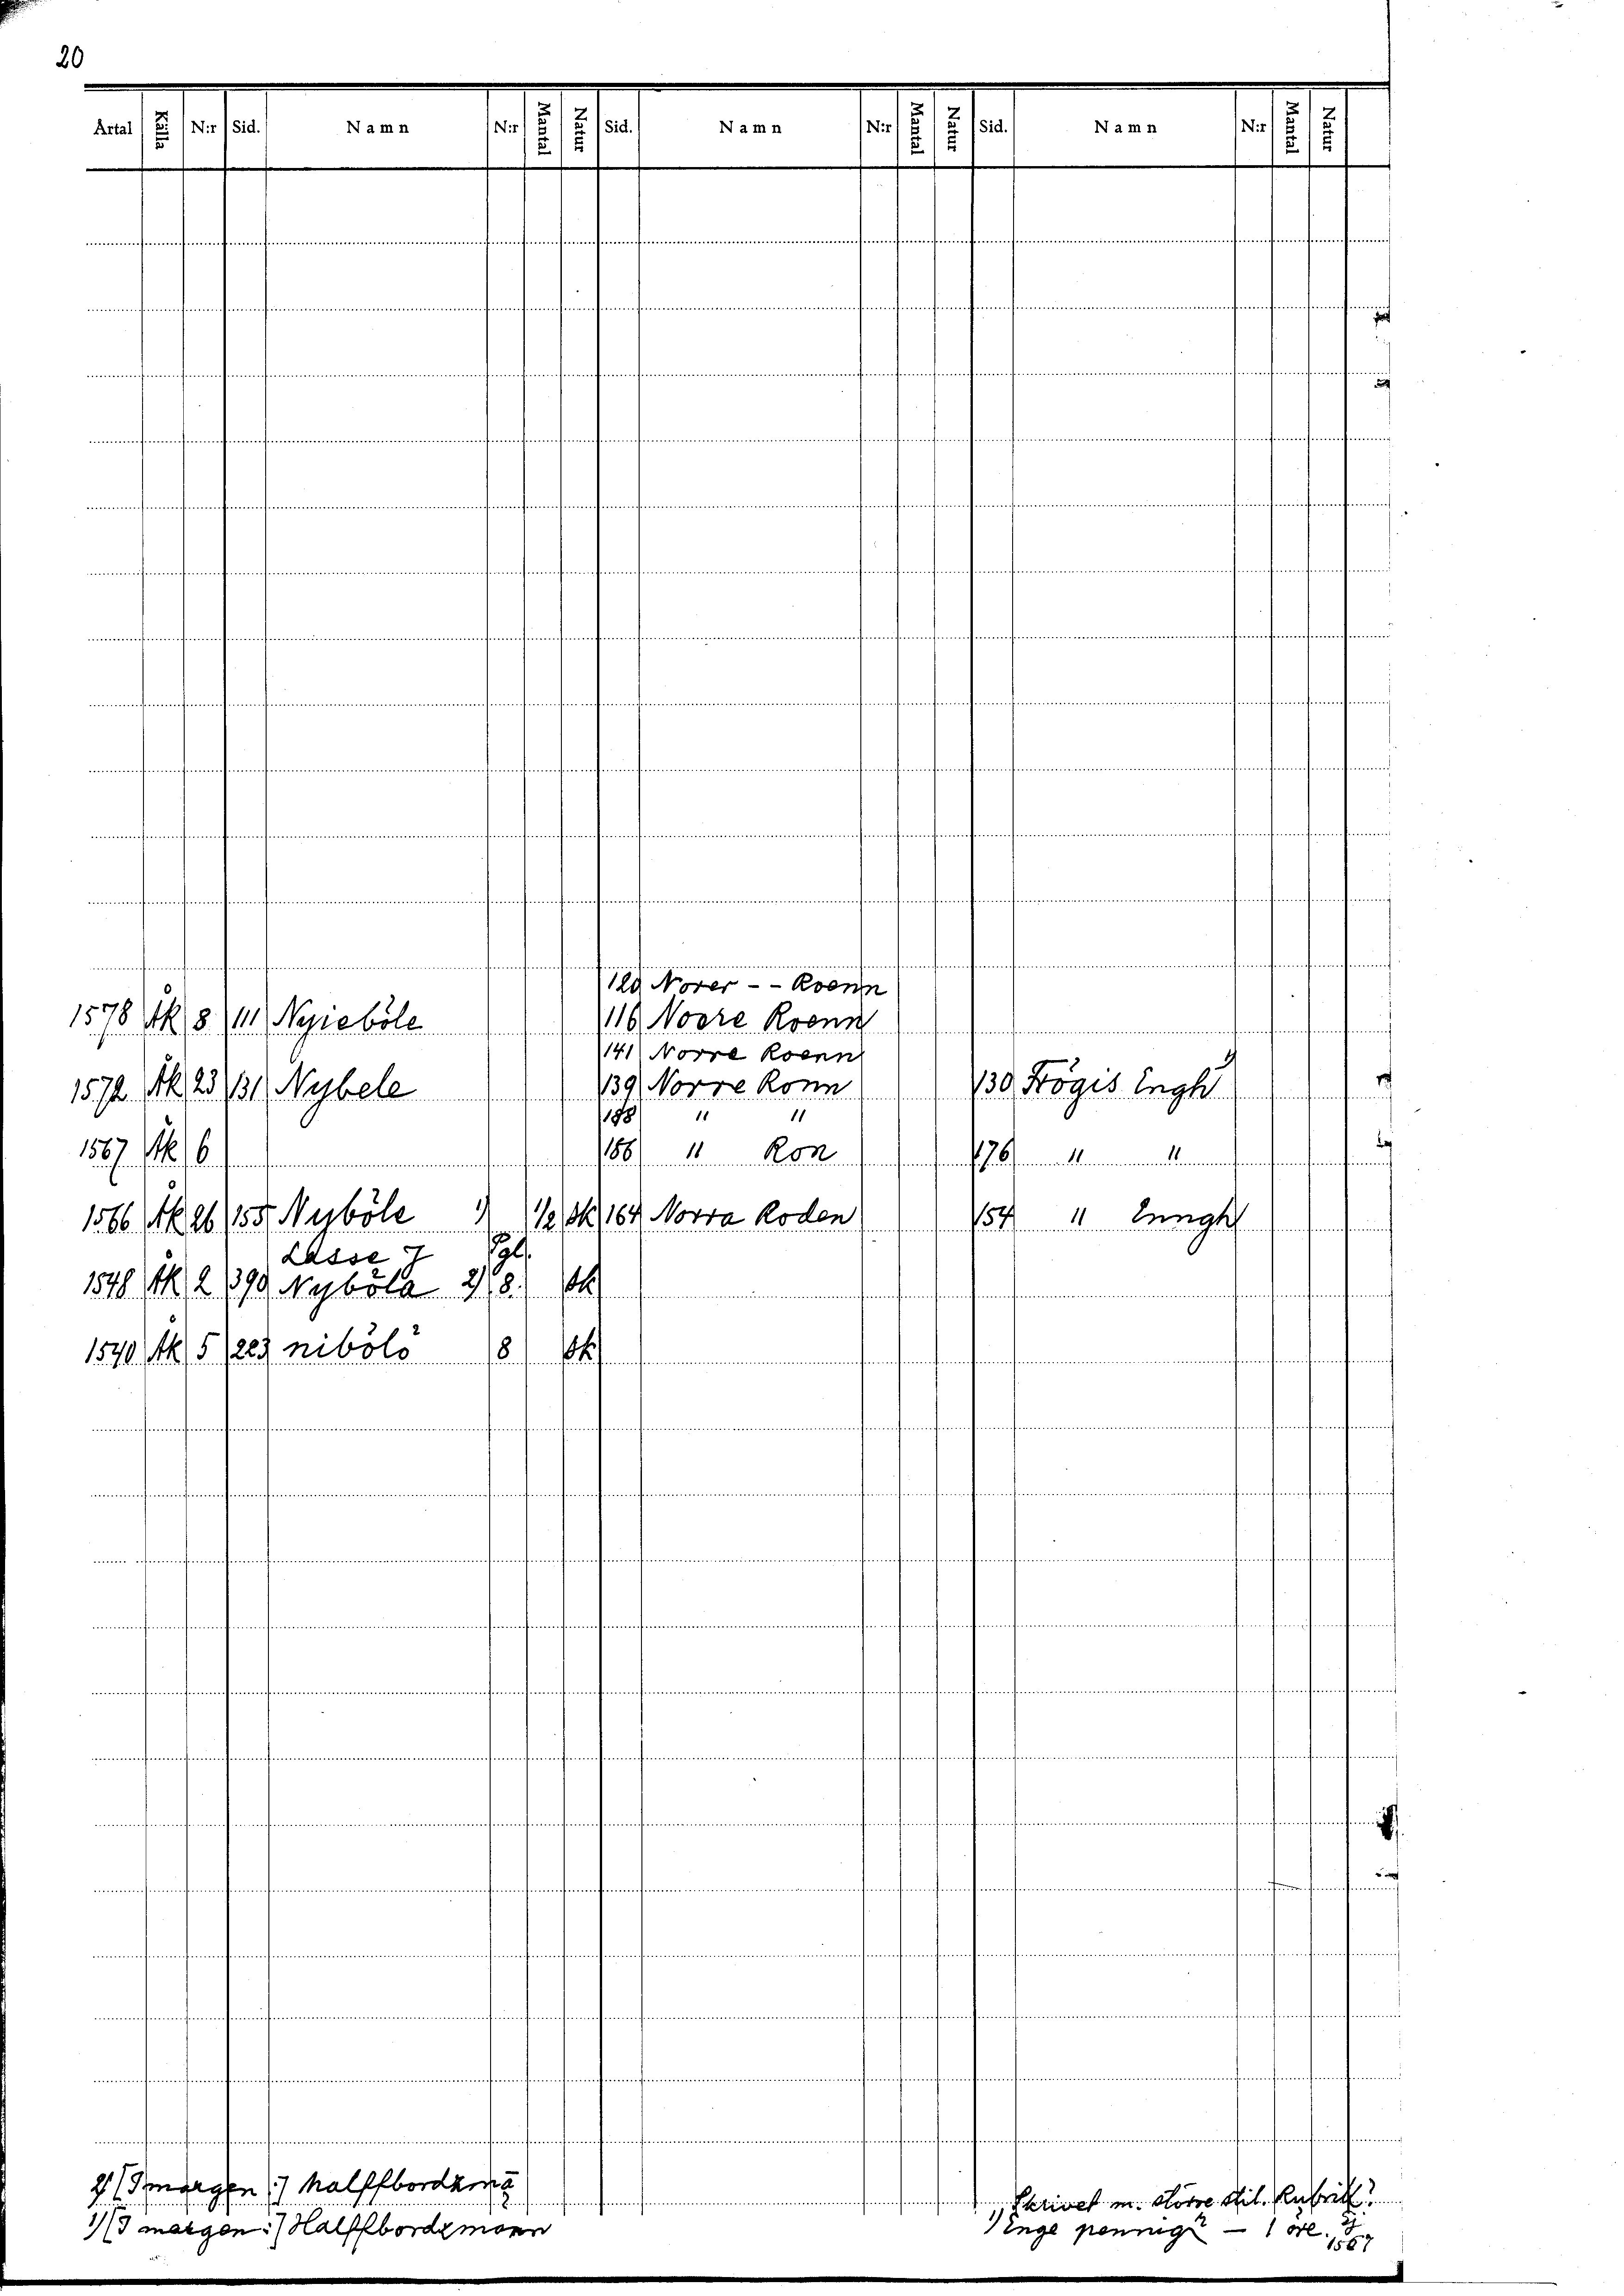 20
Årtal Källa N:r Sid. Namn N:r Mantal Natur Sid. Namn N:r Mantal Natur Sid. Namn N:r Mantal Natur
120 Norer - - Roenn
1578 Åk 8 111 Nyieböle 116 Noore Roenn
141 Norre Roenn
1572 Åk 23 131 Nybele 139 Norre Ronn 130 Frögis Engh 1)
188 " "
1567 Åk 6 186 " Ron 176 " "
1566 Åk 26 155 Nyböle 1) 1/2 Sk 164 Norra Roden 154 " Enngh
Lasse J Pgl.
1548 Åk 2 390 Nyböla 2) 8. Sk
1540 Åk 5 223 nibölö 8 Sk
2) [I margen:] halffbordzmā
1) [I margen:] Halffbordzmann
Skrivet m. större stil. Rubrik?
1) Enge pennigr — 1 öre. Ej
1567